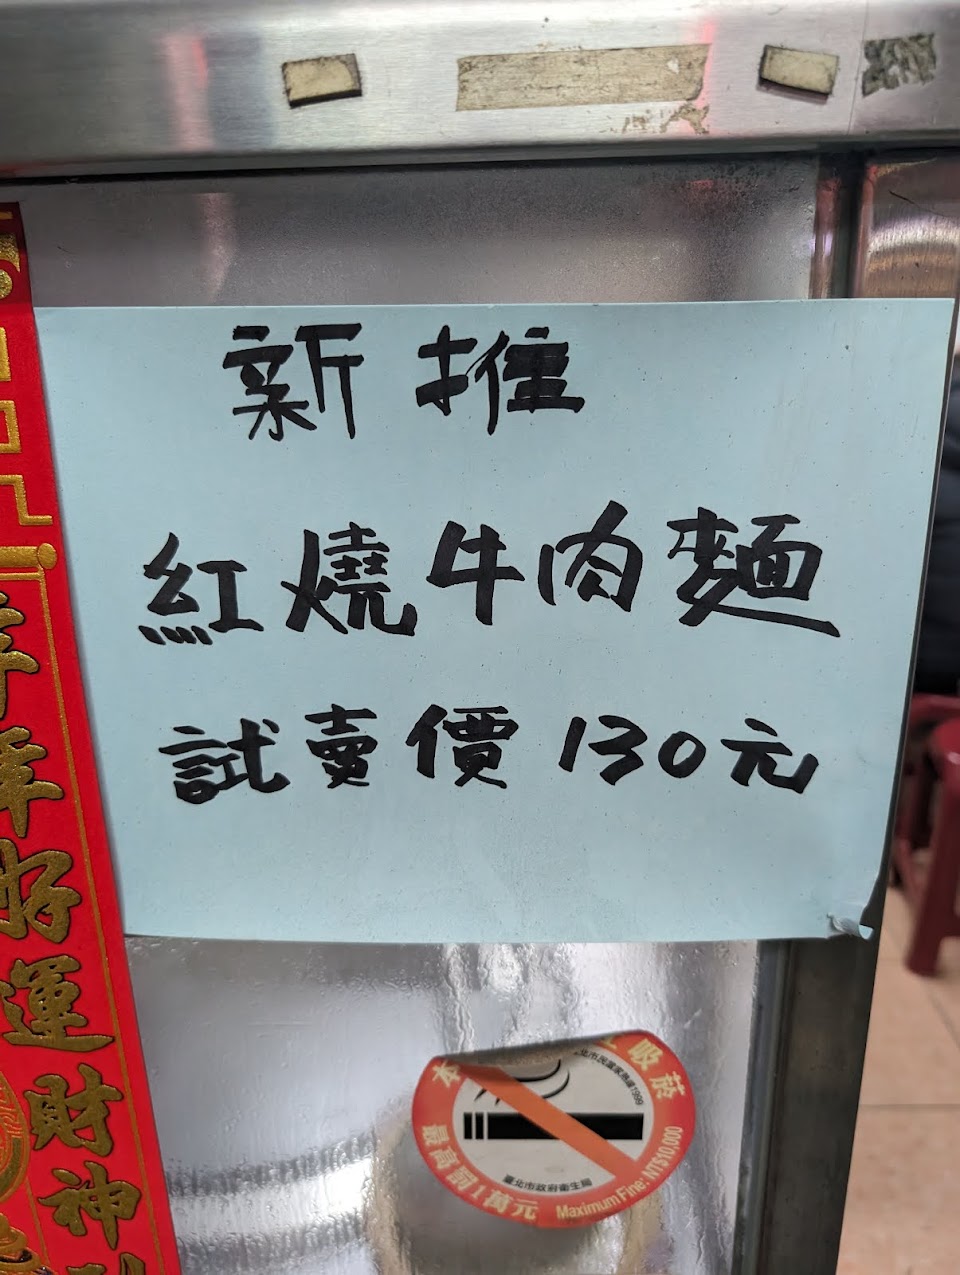 新推
紅燒牛肉麵
試賣價130元
年好運財神
吸菸
臺北市政府衛生局
最高罰1萬元
Maximum Fine: NT$10,000